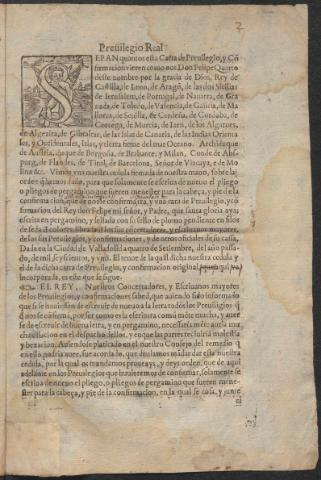 2
Preuilegio Real
SEPAN quantos esta Carta de Preuilegio, y Cõ
firmacion vieren como nos Don Felipe Quarto
deste nombre por la gracia de Dios, Rey de
Castilla, de Leon, de Aragõ, de las dos Sicilias
de Ierusalem, de Portugal, de Nauarra, de Gra
nada, de Toledo, de Valencia, de Galicia, de Ma
llorca, de Seuilla, de Cerdeña, de Cordoba, de
Corcega, de Murcia, de Iaen, de los Algarues,
de Algezira, de Gibraltar, de las Islas de Canaria, de las Indias Orienta
les, y Occidentales, Islas, y tierra firme del mar Oceano. Archiduque
de Austria, duque de Borgoña, de Brabante, y Milan, Conde de Abs-
purg, de Flandes, de Tirol, de Barcelona, Señor de Vizcaya, e de Mo
lina &c. Vimos vna nuestra cedula firmada de nuestra mano, sobre la
orden q̃ damos dada, para que solamente se escriua de nueuo el pliego
o pliegos de pergamino que fueren menester para la cabeça, y pie de la
confirmacion, que se nos confirmar, y vna carta de Preuilegio, y cõ
firmacion del Rey don Felipe mi señor, y Padre, que santa gloria aya,
escrita en pergamino, y sellada con su sello de plomo pendiente en filos
de seda
de los sus Preuilegios, y confirmaciones, y de otros oficiales de su casa,
Dada en la Ciudad de Valladolid a quatro de Setiembre, del año passa-
do, de mil seyscientos, y vno. El tenor de la qual dicha nuestra cedula y
el de la dicha carta de Preuilegio, y confirmacion original
incorporada, es este que se sigue.
EL REY. Nuestros Concertadores, y Escriuanos mayores
de los Preuilegios, y confirmaciones sabed, que auiendo sido informado
que si se huuiessen de escreuir de nueuo a la letra todos los Preuilegios q̃
dnos se cõfirmã, por ser como es la escritura comũ mẽte mucha, y auer
se de escreuir de buena letra, y en pergamino, necessaria mẽte auria mu
cha dilacion en el despacho dellos, y en que las partes recibirã molestia
y bexacion. Auiendose platicado en el nuestro Consejo del remedio q̃
en ello podria auer, fue acordado, que deuiamos mãdar dar esta nuestra
cedula, por la qual os mandamos proueays, y deys orden, que de aqui
adelante en los Preuilegios que huuieremos de confirmar, solamente se
escriua de nueuo el pliego, o pliegos de pergamino que fueren menes-
ster para la cabeça, y pie de la confirmacion, en la qual se caya, y junte